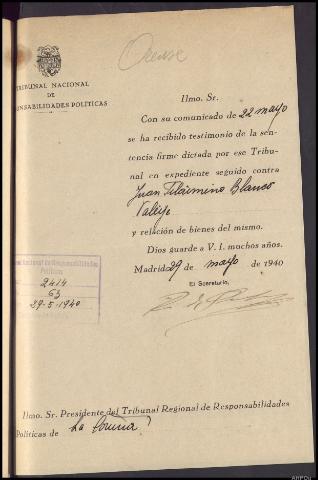 Orense
TRIBUNAL NACIONAL
DE
ONSABILIDADES POLÍTICAS
Ilmo. Sr.
Con su comunicado de 22 mayo
se ha recibido testimonio de la sen-
tencia firme dictada por ese Tribu-
nal en expediente seguido contra
Juan Filomino Blanco
Vallejo
y relación de bienes del mismo.
Dios guarde a V. I. muchos años.
Madrid 29 de mayo de 1940
El Secretario,
Nacional de Responsabilidades
Políticas
2414
63
29-5-1940
Ilmo. Sr. Presidente del Tribunal Regional de Responsabilidades
Políticas de La Coruña